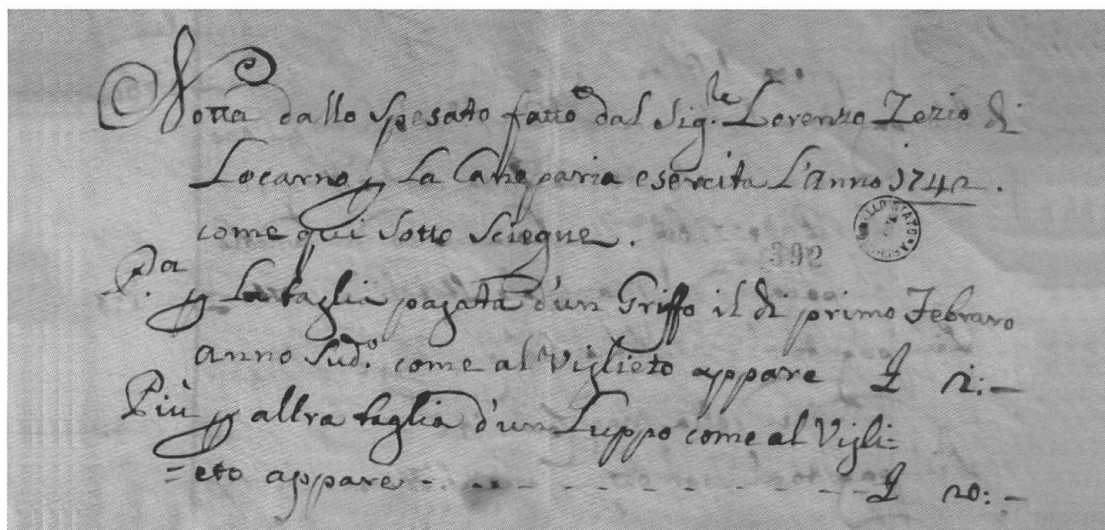 Notta dallo Spesato fatto dal Sig.re Lorenzo Zezio di
Locarno p La Canepparia esercita L'Anno 1742.
come qui Sotto Sciegue.
392
P.a p La taglia pagata d'un Griffo il di primo Febraro
anno Sud.o come al Viglieto appare L 2:-
Più p altra taglia d'un Luppo come al Vigli=
=eto appare - - - - - - - - - - L 20:-